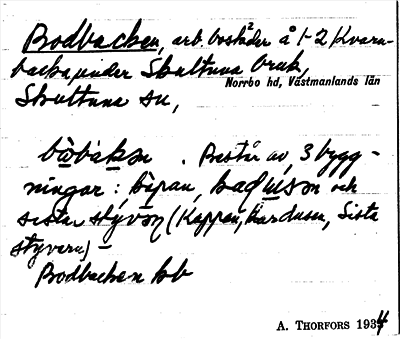 Bodbacken, arb. bostäder å 1-2 Kvarn-
backa, under Skultuna bruk,
Norrbo hd, Västmanlands län
Skultuna sn,
Består av 3 bygg-
ningar: och
sista (Kappan, Kardusen, Sista
styvern) -
Bodbacken bb
A. THORFORS 1934